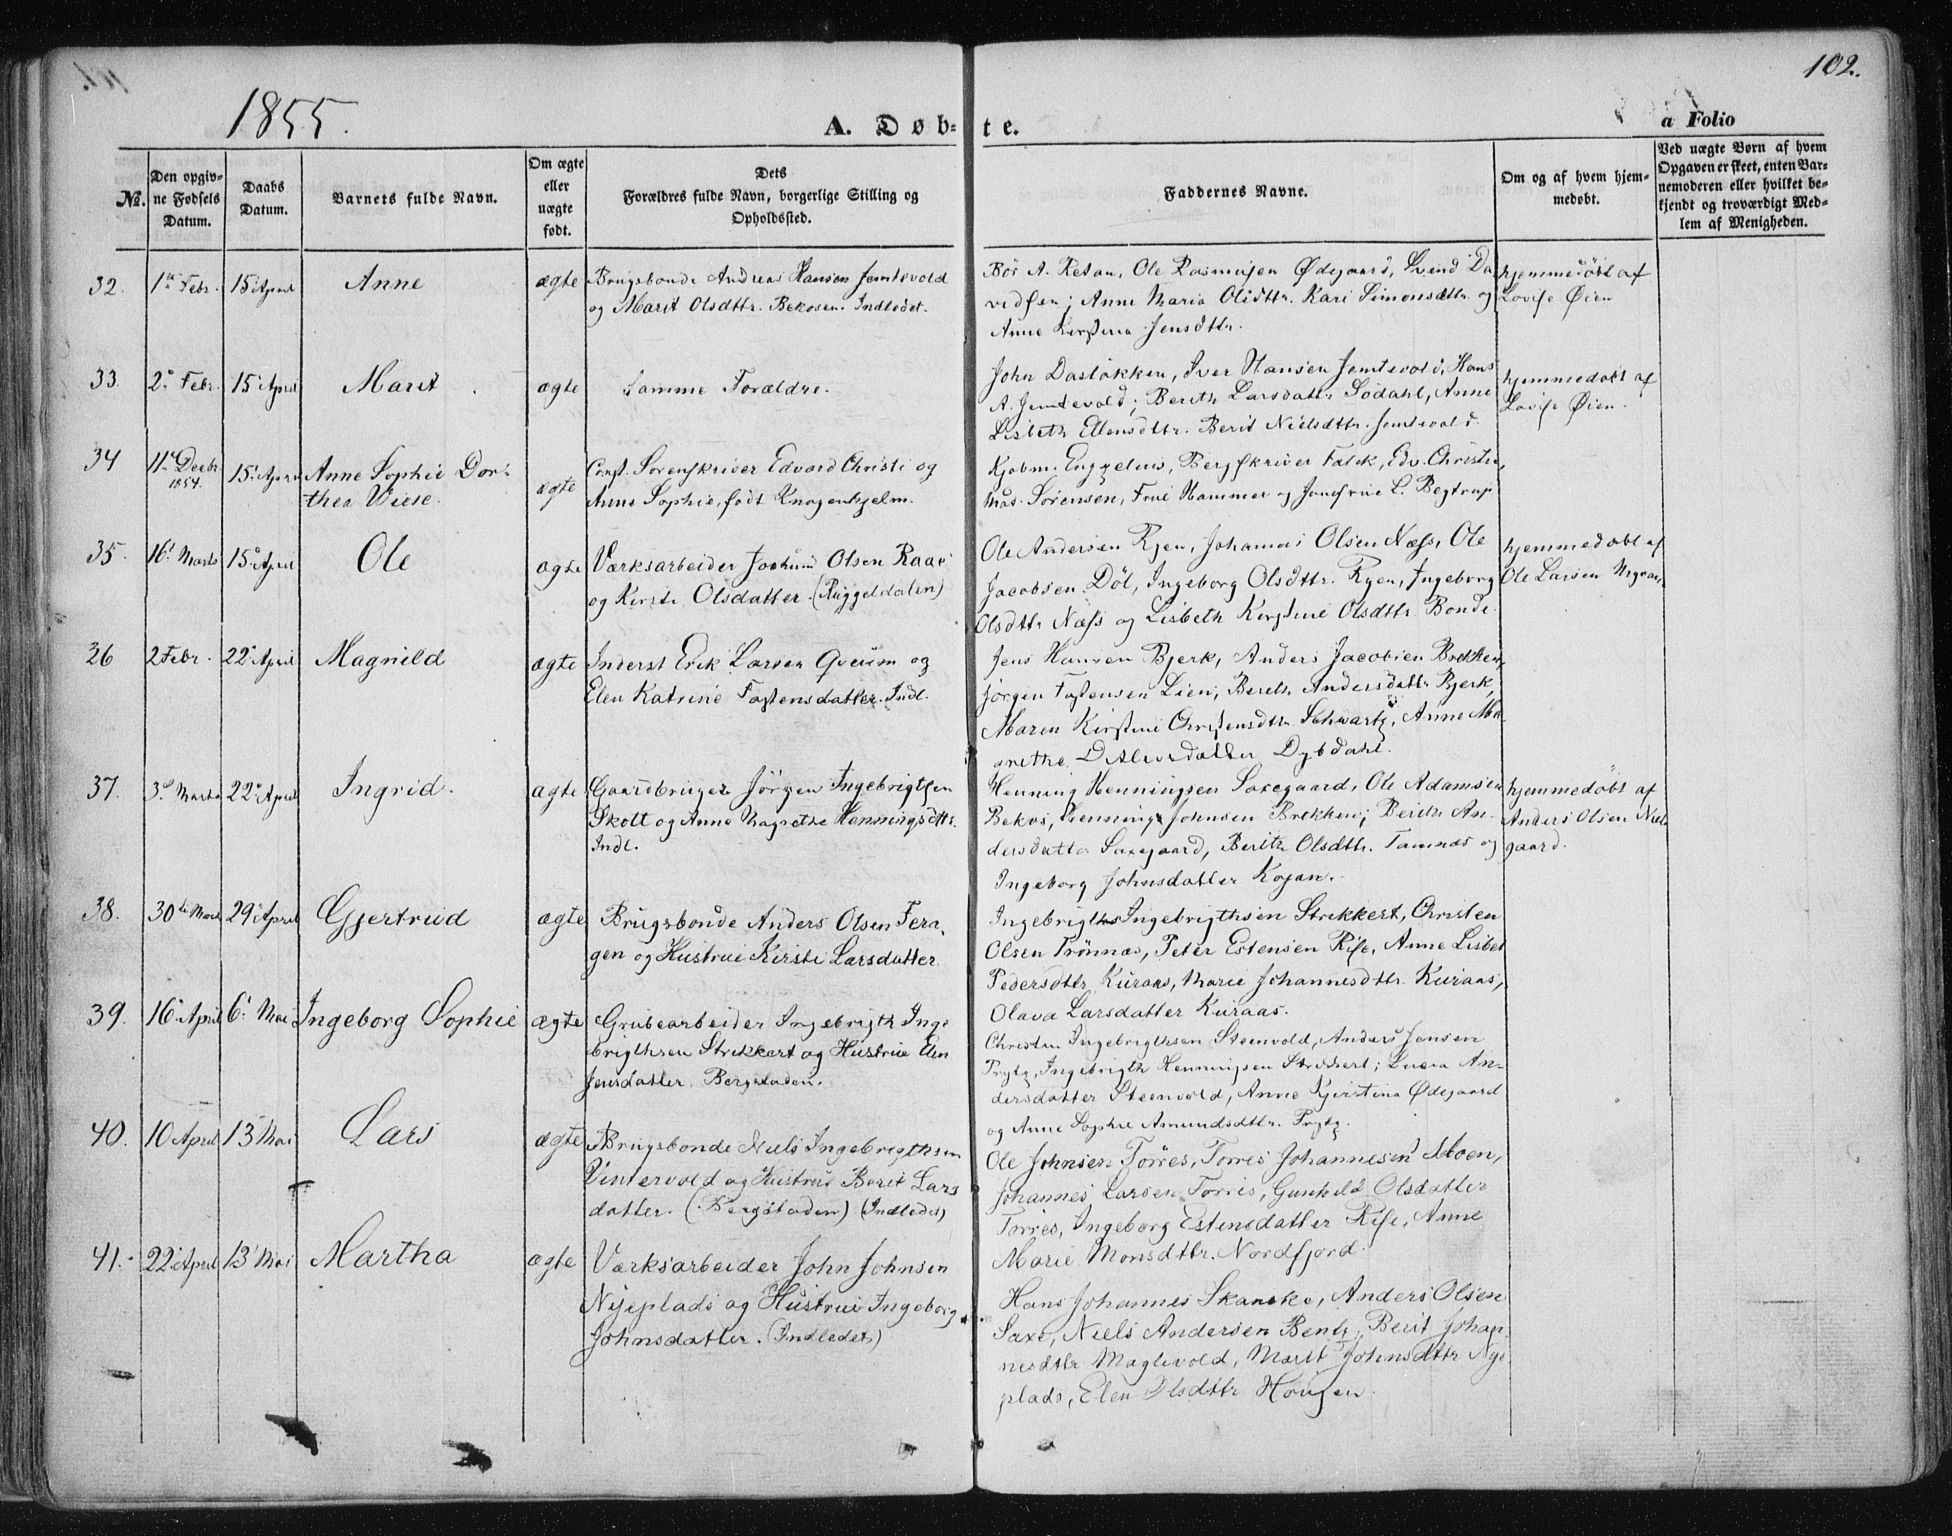 102.
1855.
A. Døb-
te.
a Folio
No.
Den opgiv-
ne Fødsels
Datum.
Daabs
Datum.
Barnets fulde Navn.
Om ægte
eller
uægte
født.
Dets
Forældres fulde Navn, borgerlige Stilling og
Opholdssted.
Faddernes Navne.
Om og af hvem hjem-
medøbt.
Ved uægte Børn af hvem
Opgaven er skeet, enten Bar-
nemoderen eller hvilket be-
kjendt og troværdigt Med-
lem af Menigheden.
32. 1ste Febr. 15 April Anne ægte Brugsbonde Andreas Hansen Jemtevold
og Marit Olsdttr. Bekosen. Indledet.
A. Retan, Ole Rasmusen Ødegaard, Svend Da
vidsen; Anne Maria Olsdttr. Kari Simonsdttr. og
Anne Kirstina Jensdttr.
hjemmedøbt af
Lovise Øien
33. 2. Febr. 15 April Marit ægte Samme Forældre.
John Dasløkken, Iver Hansen Jemtevold, Hans
A. Jemtevold; Berith Larsdattr Sødahl, Anne
Lisbeth Ellensdttr. Berit Nielsdttr. Jemtevold.
hjemmedøbt af
Lovise Øien.
34 11te Decbr. 1854. 15 April Anne Sophie Dor-
thea Wiese. ægte Const. Sorenskriver Edvard Christi og
Anne Sophie, født Knagenhjelm.
Kjøbm. Engzelius, Bergskriver Falck, Edv. Christie,
Mad. Sørensen, Frue Hammer og Jomfrue L. Begtrup
35. 16. Marts 15 April Ole ægte Værksarbeider Jochum Olsen Raae
og Kirsti Olsdatter. (Ryggeldalen)
Ole Andersen Ryen, Johannes Olsen Næss, Ole
Jacobsen Döl, Ingeborg Olsdttr. Ryen, Ingeborg
Olsdttr Næss og Lisbeth Kirstine Olsdttr Bonde.
hjemmedøbt af
Ole Larsen
36 2 Febr. 22 April Magnild ægte Inderst Erik Larsen Qveum og
Elen Katrine Tostensdatter. Indl.
Jens Hansen Bjerk, Anders Jacobsen Brekken,
Jørgen Tostensen Lien; Bereth Andersdattr Bjerk,
Maren Kirstine Christensdttr Schwartz, Anne Ma-
grethe Ditlevsdatter Dybdahl.
37. 3. Marts 22 April Ingrid. ægte Gaardbruger Jörgen Ingebrigtsen
Skott og Anne Magrethe Henningsdttr.
Indl.
Henning Henningsen Saxegaard, Ole Adamsen
Bekos, Henning Johnsen Brekken; Berith An-
dersdatter Saxegaard, Berith Olsdttr. Tamnæs og
Ingeborg Johnsdatter Kojan.
hjemmedøbt af
Anders Olsen Niels
gaard.
38. 30te Marts 29 April Gjertrud ægte Brugsbonde Anders Olsen Fera-
gen og Hustrue Kirsti Larsdatter
Ingebrigth Ingebrigthsen Strikkert, Christen
Olsen Trönnæs, Peter Estensen Rise, Anne Lisbet
Pedersdttr Kuraas, Marie Johannesdttr. Kuraas,
Olava Larsdatter Kuraas.
39. 16 April 6. Mai Ingeborg Sophie ægte Grubearbeider Ingebrigth Inge
brigthsen Strikkert og Hustrue Elen
Jensdatter. Bergstaden.
Christen Ingebrigthsen Steenvold, Anders Jensen
Prytz, Ingebrigth Henningsen Strikkert; Lucia An-
dersdatter Steenvold, Anne Kjerstina Ødegaard
og Anne Sophie Amundsdttr. Prytz.
40. 10 April 13 Mai Lars ægte Brugsbonde Niels Ingebrigthsen
Vintervold og Hustrue Berit Lars
datter. (Bergstaden) (Indledet)
Ole Johnsen Torres, Torres Johannesen Moen,
Johannes Larsen Torres, Gunhild Olsdatter
Torres, Ingeborg Estensdatter Rise, Anne
Marie Monsdttr. Nordfjord.
41. 22 April 13 Mai Martha ægte Værksarbeider John Johnsen
Nyeplads og Hustrue Ingeborg
Johnsdatter. (Indledet)
Hans Johannes Skancke, Anders Olsen
Saxe, Niels Andersen Bentz, Berit Johan-
nesdttr Maglevold, Marit Johnsdttr Nye
plads, Elen Olsdttr Hougen.